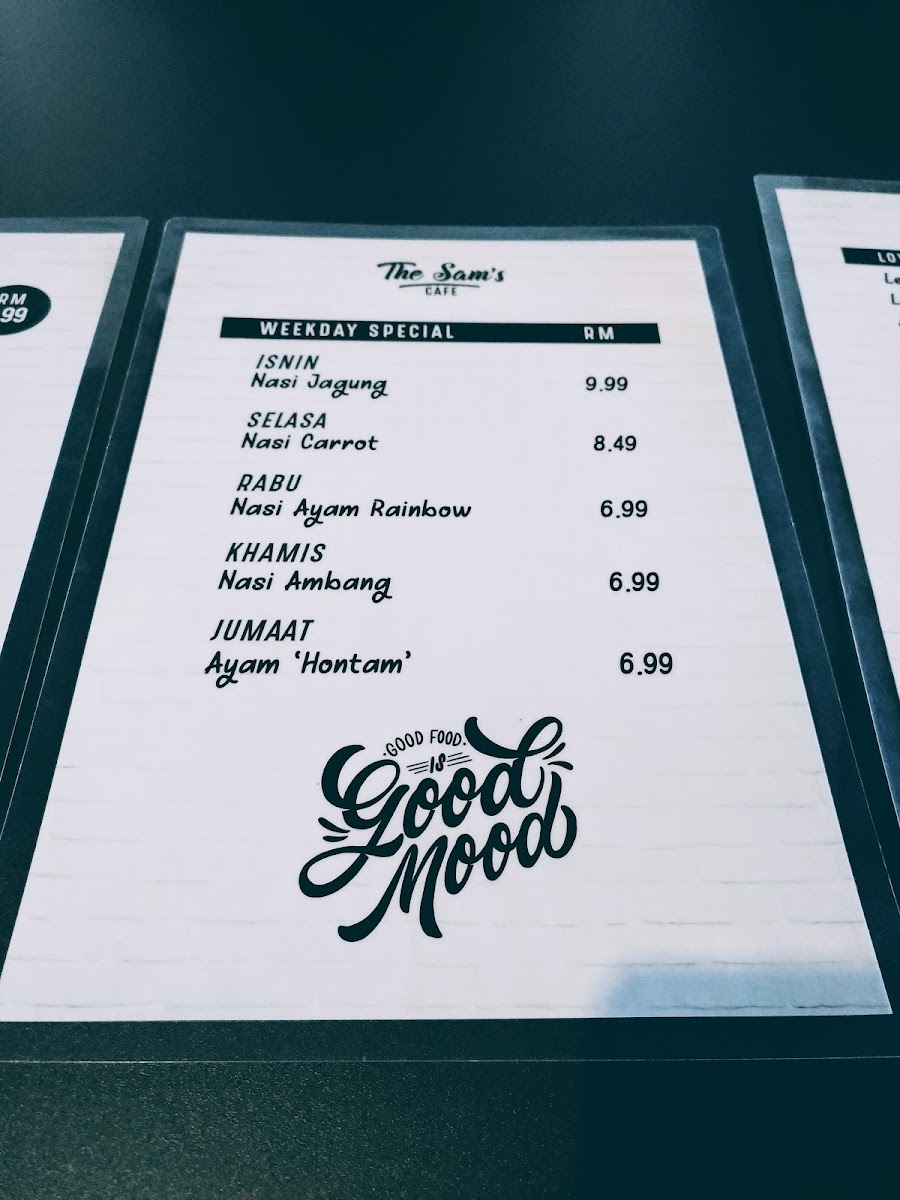 The Sam's
CAFE
WEEKDAY SPECIAL RM
ISNIN
Nasi Jagung 9.99
SELASA
Nasi Carrot 8.49
RABU
Nasi Ayam Rainbow 6.99
KHAMIS
Nasi Ambang 6.99
JUMAAT
Ayam ‘Hontam’ 6.99
·GOOD FOOD·
IS
Good
Mood
RM
99